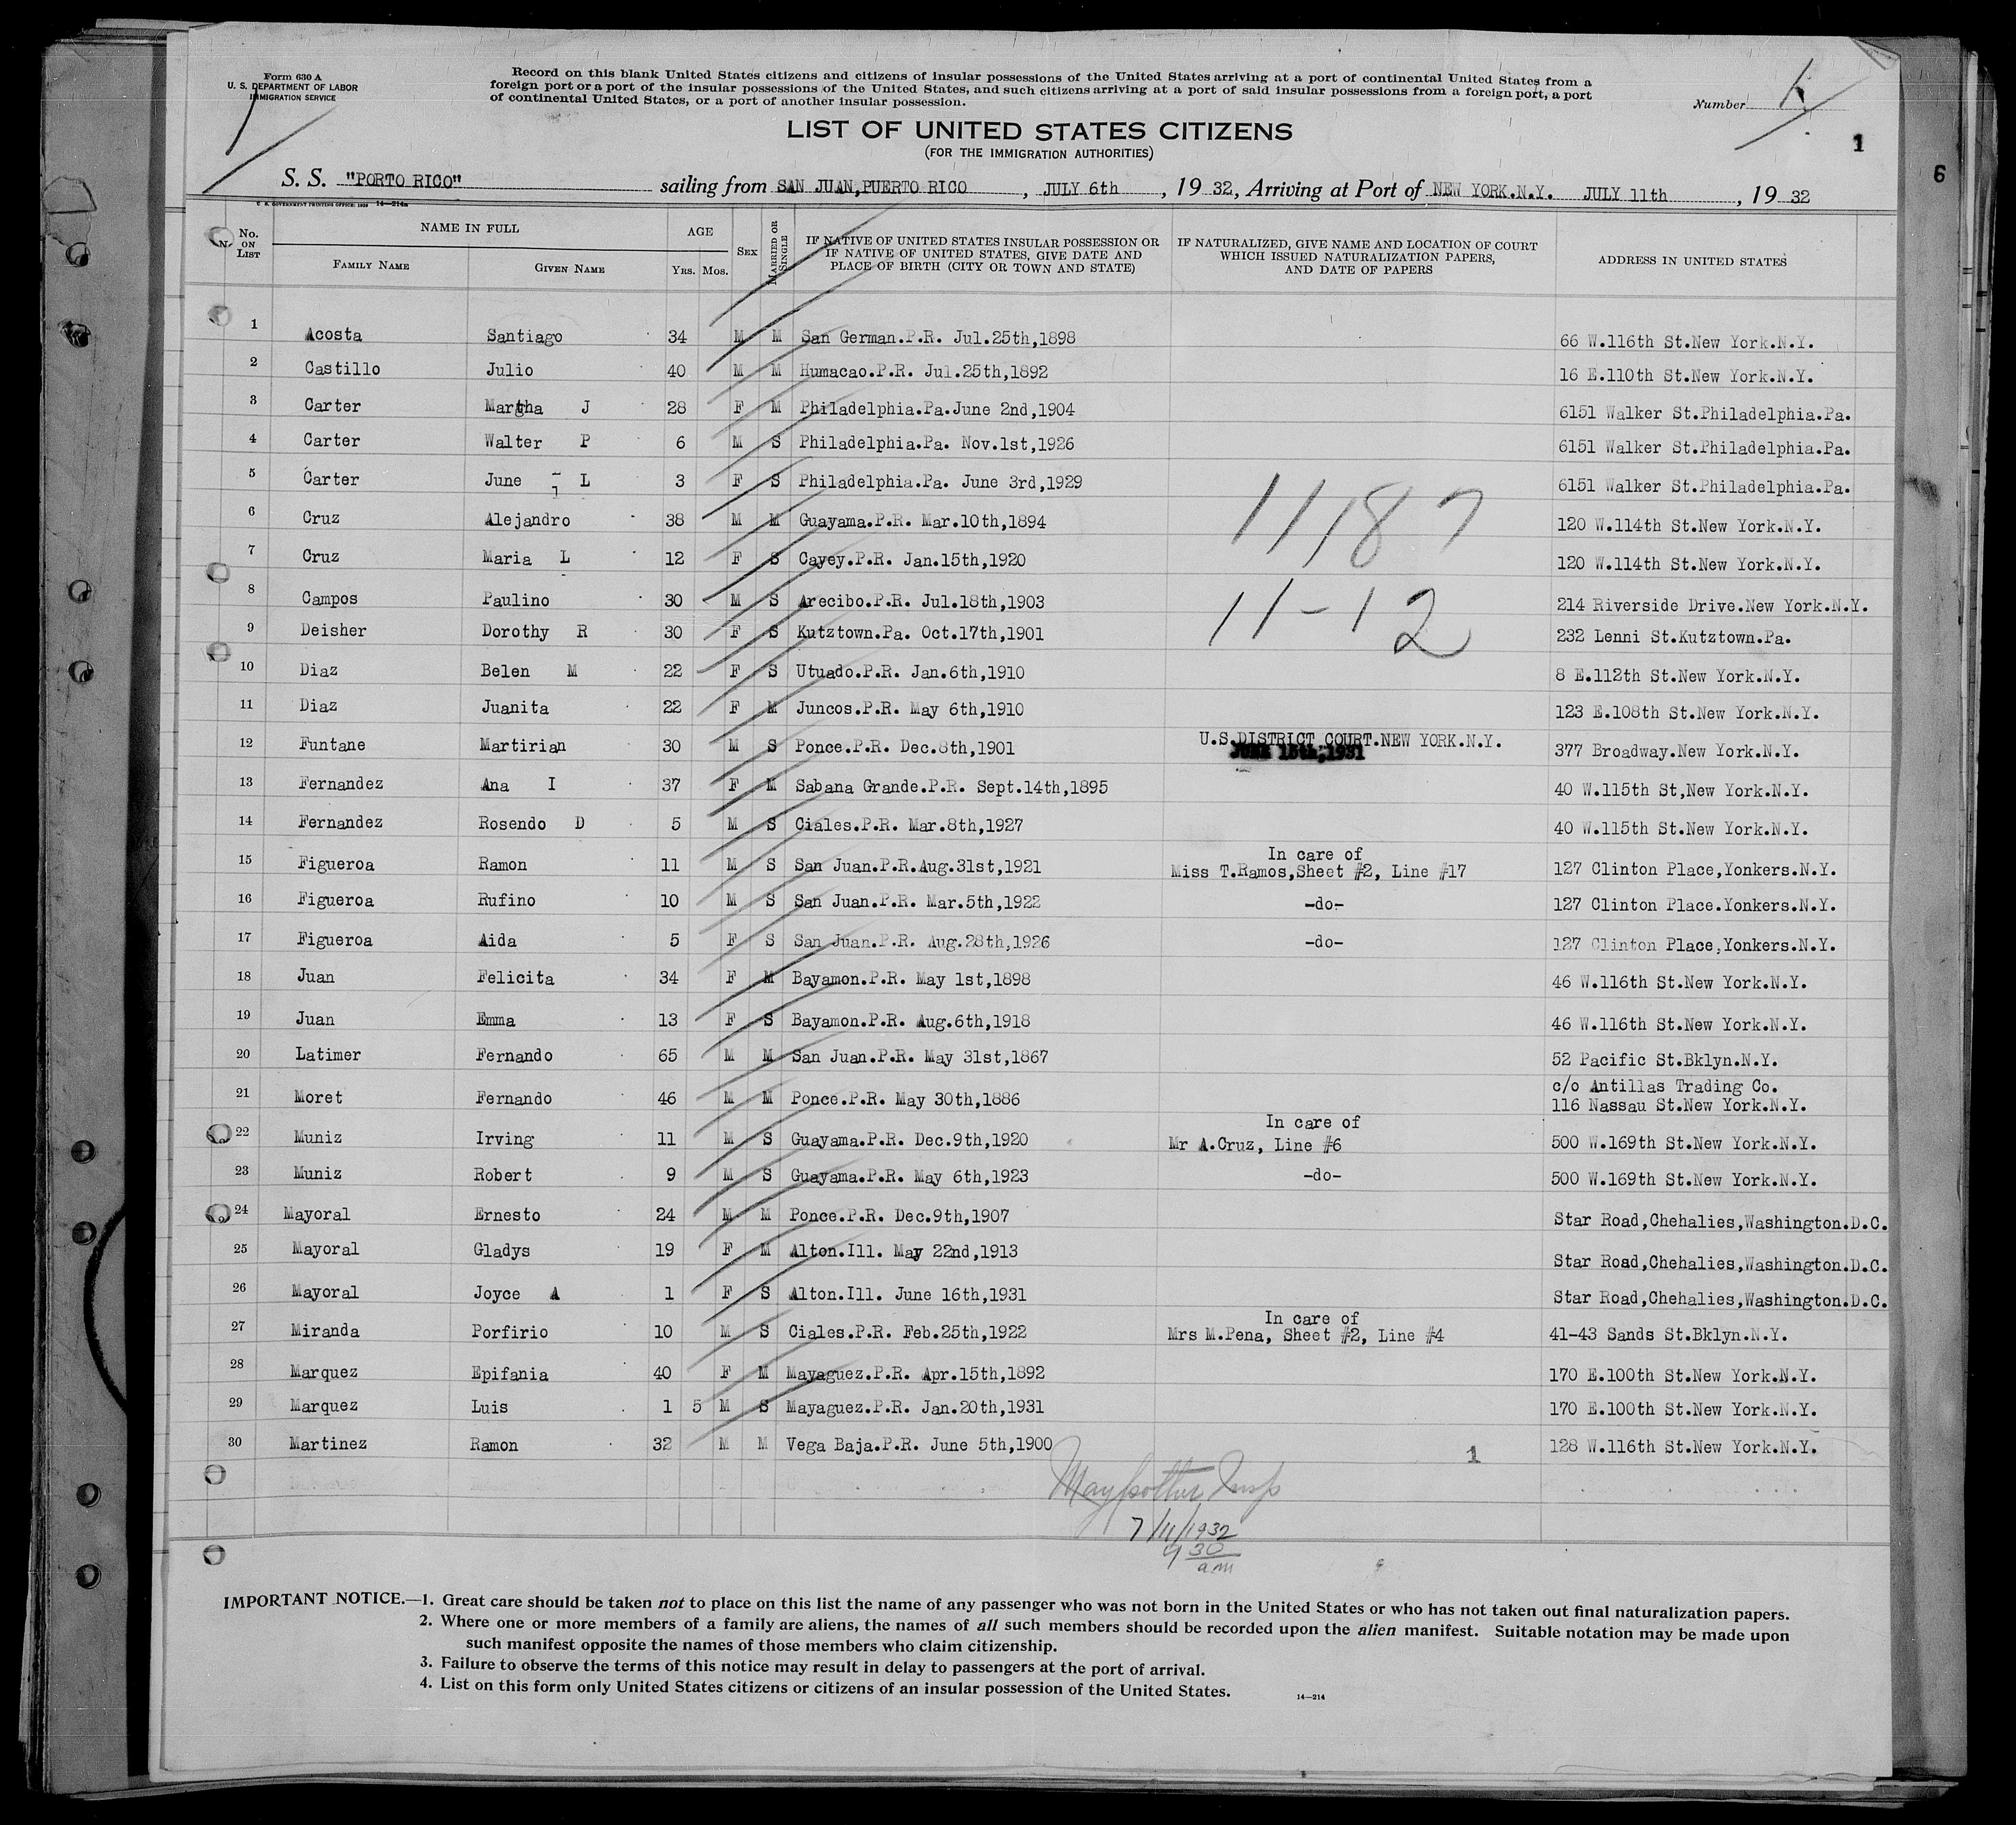 Form 630 A
U. S. DEPARTMENT OF LABOR
IMMIGRATION SERVICE
Record on this blank United States citizens and citizens of insular possessions of the United States arriving at a port of continental United States from a
foreign port or a port of the insular possessions of the United States, and such citizens arriving at a port of said insular possessions from a foreign port, a port
of continental United States, or a port of another insular possession.
Number
LIST OF UNITED STATES CITIZENS
1
(FOR THE IMMIGRATION AUTHORITIES)
6
S. S. "PORTO RICO" sailing from SAN JUAN,PUERTO RICO , JULY 6th , 19 32, Arriving at Port of NEW YORK.N.Y. JULY 11th , 19 32
U. S. GOVERNMENT PRINTING OFFICE: 1929 14—214a
No. ON LIST
NAME IN FULL
FAMILY NAME
GIVEN NAME
AGE
YRS. MOS.
SEX
MARRIED OR SINGLE
IF NATIVE OF UNITED STATES INSULAR POSSESSION OR
IF NATIVE OF UNITED STATES, GIVE DATE AND
PLACE OF BIRTH (CITY OR TOWN AND STATE)
IF NATURALIZED, GIVE NAME AND LOCATION OF COURT
WHICH ISSUED NATURALIZATION PAPERS,
AND DATE OF PAPERS
ADDRESS IN UNITED STATES
1 Acosta Santiago 34 M M San German.P.R. Jul.25th,1898 66 W.116th St.New York.N.Y.
2 Castillo Julio 40 M M Humacao.P.R. Jul.25th,1892 16 E.110th St.New York.N.Y.
3 Carter Martha J 28 F M Philadelphia.Pa.June 2nd,1904 6151 Walker St.Philadelphia.Pa.
4 Carter Walter P 6 M S Philadelphia.Pa. Nov.1st,1926 6151 Walker St.Philadelphia.Pa.
5 Carter June L 3 F S Philadelphia.Pa. June 3rd,1929 6151 Walker St.Philadelphia.Pa.
6 Cruz Alejandro 38 M M Guayama.P.R. Mar.10th,1894 1187 120 W.114th St.New York.N.Y.
7 Cruz Maria L 12 F S Cayey.P.R. Jan.15th,1920 120 W.114th St.New York.N.Y.
8 Campos Paulino 30 M S Arecibo.P.R. Jul.18th,1903 11-12 214 Riverside Drive.New York.N.Y.
9 Deisher Dorothy R 30 F S Kutztown.Pa. Oct.17th,1901 232 Lenni St.Kutztown.Pa.
10 Diaz Belen M 22 F S Utuado.P.R. Jan.6th,1910 8 E.112th St.New York.N.Y.
11 Diaz Juanita 22 F M Juncos.P.R. May 6th,1910 123 E.108th St.New York.N.Y.
12 Funtane Martirian 30 M S Ponce.P.R. Dec.8th,1901 U.S.DISTRICT COURT.NEW YORK.N.Y. 377 Broadway.New York.N.Y.
JUNE 15th,1931
13 Fernandez Ana I 37 F M Sabana Grande.P.R. Sept.14th,1895 40 W.115th St,New York.N.Y.
14 Fernandez Rosendo D 5 M S Ciales.P.R. Mar.8th,1927 40 W.115th St.New York.N.Y.
In care of
15 Figueroa Ramon 11 M S San Juan.P.R.Aug.31st,1921 Miss T.Ramos,Sheet #2, Line #17 127 Clinton Place,Yonkers.N.Y.
16 Figueroa Rufino 10 M S San Juan.P.R. Mar.5th,1922 -do- 127 Clinton Place.Yonkers.N.Y.
17 Figueroa Aida 5 F S San Juan.P.R. Aug.28th,1926 -do- 127 Clinton Place,Yonkers.N.Y.
18 Juan Felicita 34 F M Bayamon.P.R. May 1st,1898 46 W.116th St.New York.N.Y.
19 Juan Emma 13 F S Bayamon.P.R. Aug.6th,1918 46 W.116th St.New York.N.Y.
20 Latimer Fernando 65 M M San Juan.P.R. May 31st,1867 52 Pacific St.Bklyn.N.Y.
c/o Antillas Trading Co.
21 Moret Fernando 46 M M Ponce.P.R. May 30th,1886 116 Nassau St.New York.N.Y.
In care of
22 Muniz Irving 11 M S Guayama.P.R. Dec.9th,1920 Mr A.Cruz, Line #6 500 W.169th St.New York.N.Y.
23 Muniz Robert 9 M S Guayama.P.R. May 6th,1923 -do- 500 W.169th St.New York.N.Y.
24 Mayoral Ernesto 24 M M Ponce.P.R. Dec.9th,1907 Star Road,Chehalies,Washington.D.C.
25 Mayoral Gladys 19 F M Alton.Ill. May 22nd,1913 Star Road,Chehalies,Washington.D.C.
26 Mayoral Joyce A 1 F S Alton.Ill. June 16th,1931 Star Road,Chehalies,Washington.D.C.
In care of
27 Miranda Porfirio 10 M S Ciales.P.R. Feb.25th,1922 Mrs M.Pena, Sheet #2, Line #4 41-43 Sands St.Bklyn.N.Y.
28 Marquez Epifania 40 F M Mayaguez.P.R. Apr.15th,1892 170 E.100th St.New York.N.Y.
29 Marquez Luis 1 5 M S Mayaguez.P.R. Jan.20th,1931 170 E.100th St.New York.N.Y.
30 Martinez Ramon 32 M M Vega Baja.P.R. June 5th,1900 1 128 W.116th St.New York.N.Y.
7/11/1932
9 30 am
IMPORTANT NOTICE.—1. Great care should be taken not to place on this list the name of any passenger who was not born in the United States or who has not taken out final naturalization papers.
2. Where one or more members of a family are aliens, the names of all such members should be recorded upon the alien manifest. Suitable notation may be made upon
such manifest opposite the names of those members who claim citizenship.
3. Failure to observe the terms of this notice may result in delay to passengers at the port of arrival.
4. List on this form only United States citizens or citizens of an insular possession of the United States.
14—214